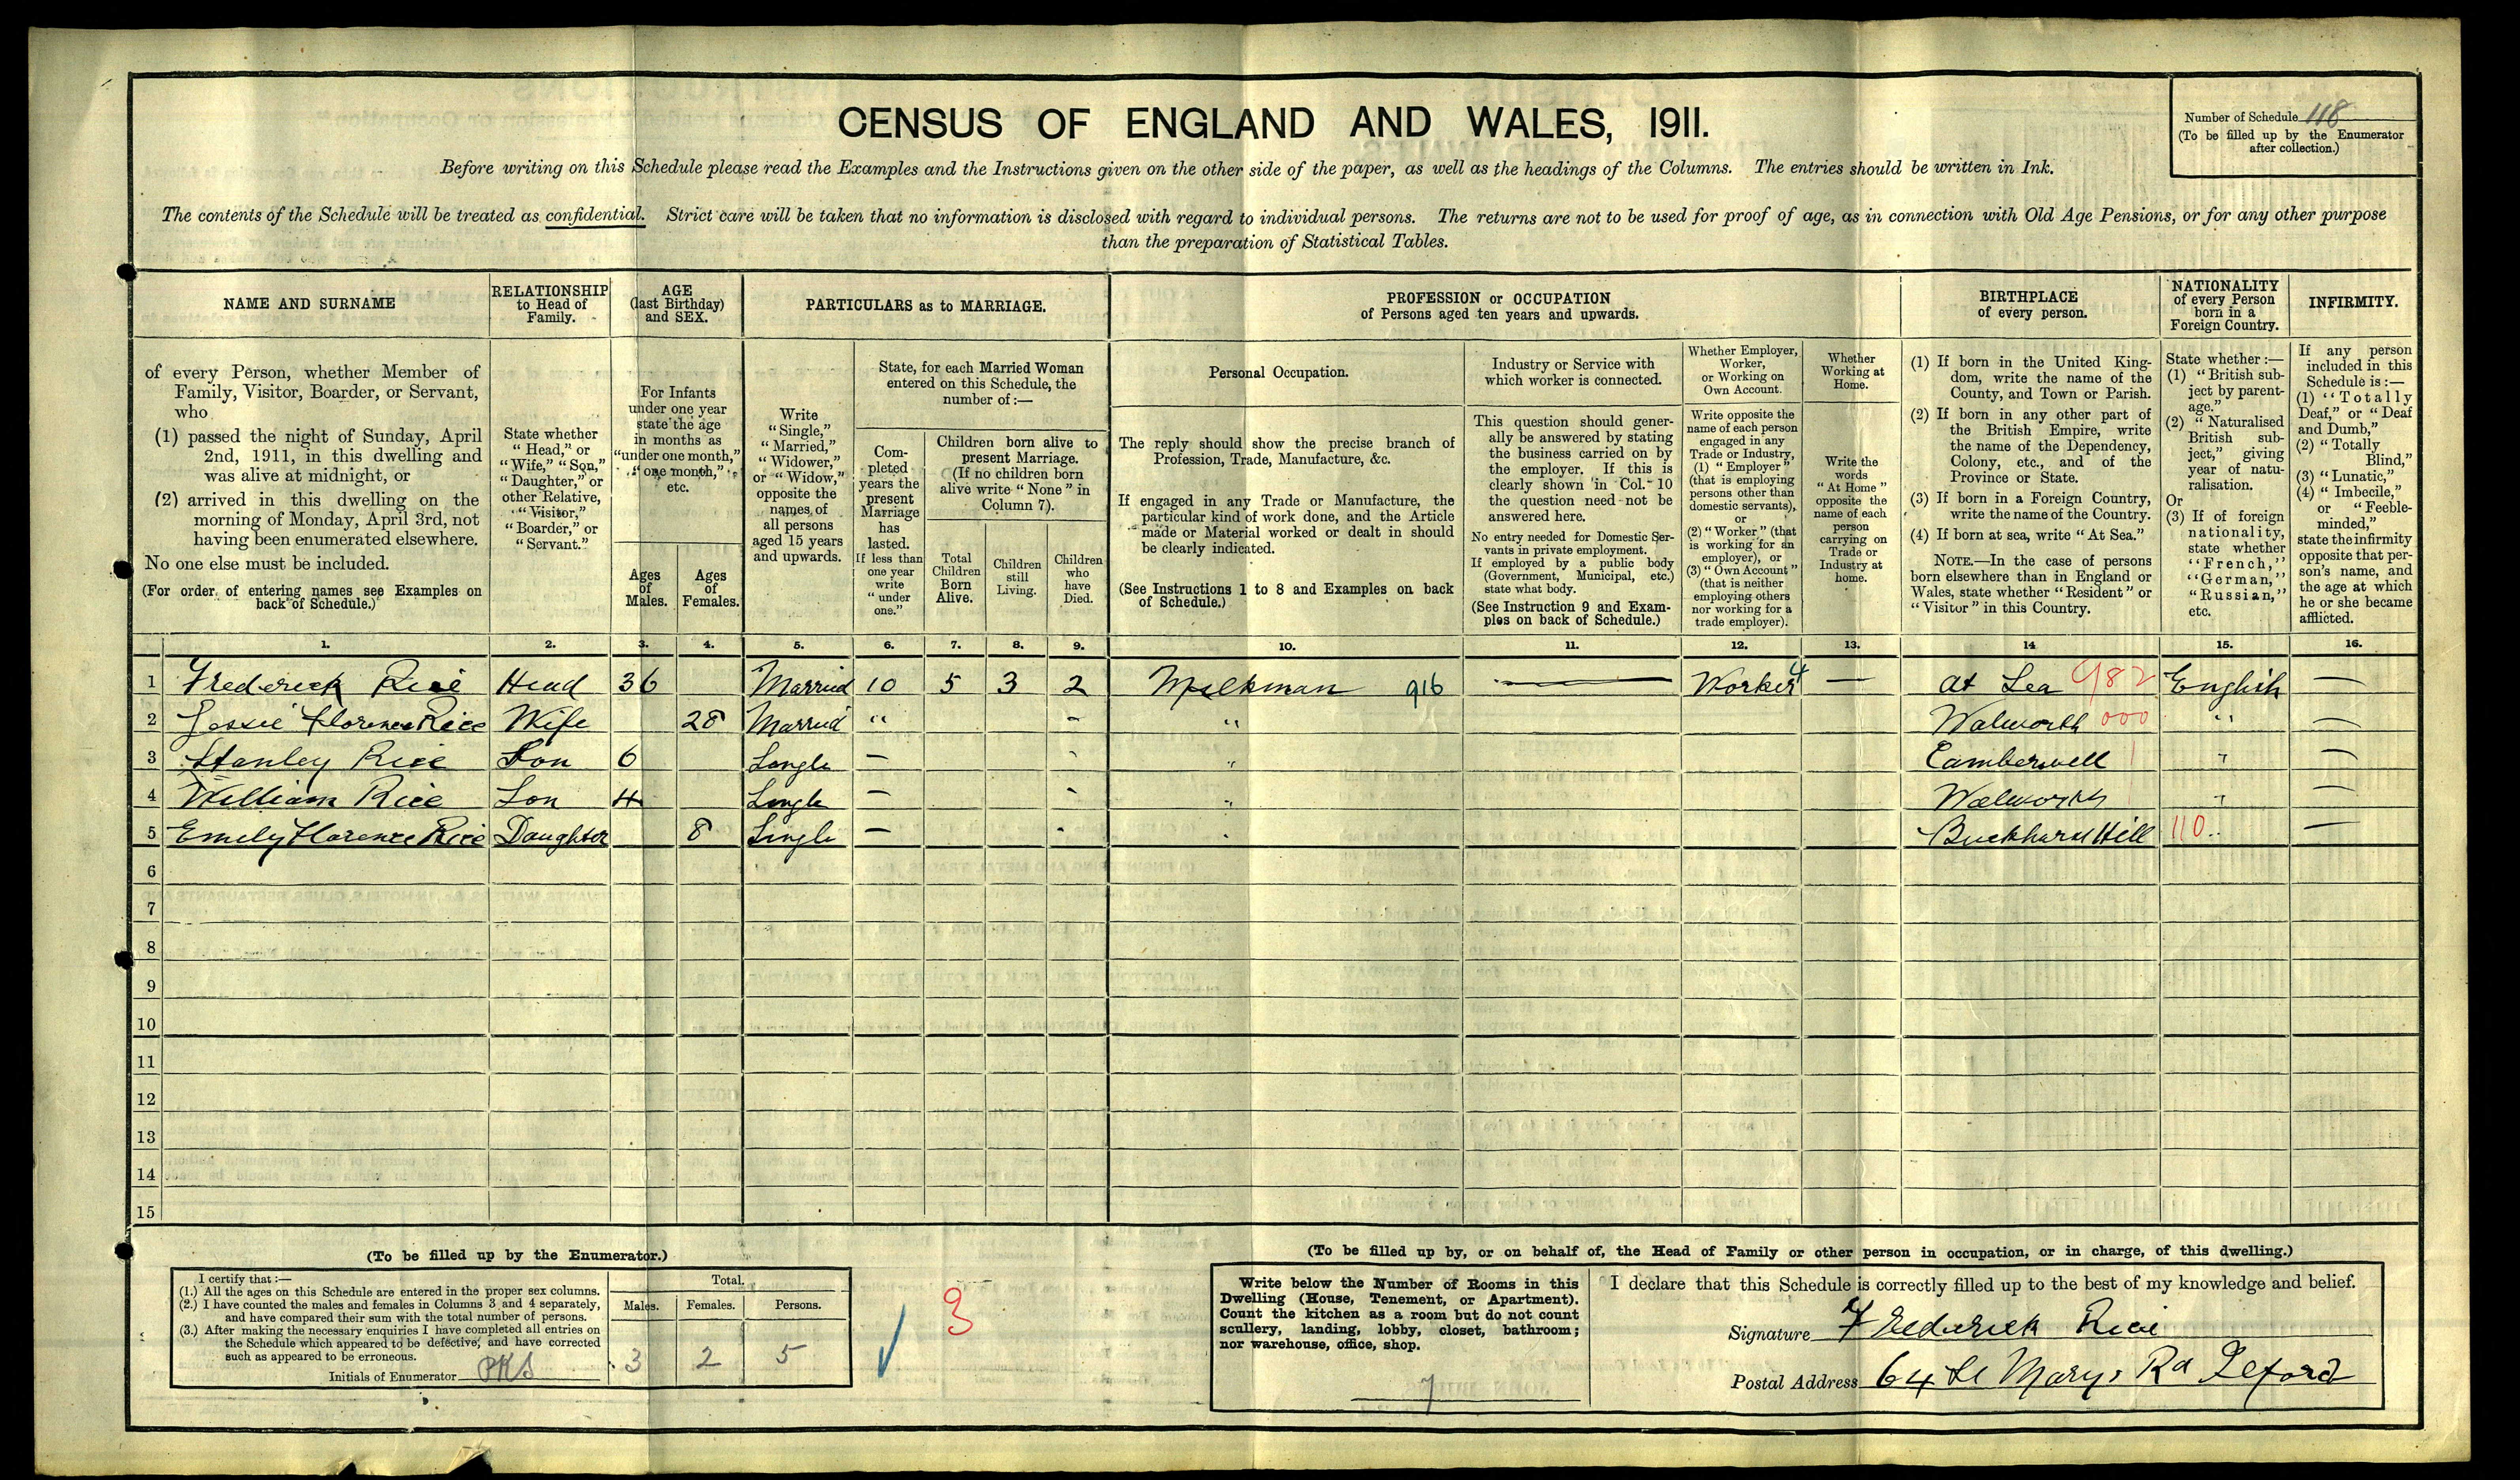 CENSUS OF ENGLAND AND WALES, 1911.
Number of Schedule 118
(To be filled up by the Enumerator
after collection.)
Before writing on this Schedule please read the Examples and the Instructions given on the other side of the paper, as well as the headings of the Columns. The entries should be written in Ink.
The contents of the Schedule will be treated as confidential. Strict care will be taken that no information is disclosed with regard to individual persons. The returns are not to be used for proof of age, as in connection with Old Age Pensions, or for any other purpose
than the preparation of Statistical Tables.
NAME AND SURNAME
of every Person, whether Member of
Family, Visitor, Boarder, or Servant,
who
(1) passed the night of Sunday, April
2nd, 1911, in this dwelling and
was alive at midnight, or
(2) arrived in this dwelling on the
morning of Monday, April 3rd, not
having been enumerated elsewhere.
No one else must be included.
(For order of entering names see Examples on
back of Schedule.)
RELATIONSHIP
to Head of
Family.
State whether
"Head," or
"Wife," "Son,"
"Daughter," or
other Relative,
"Visitor,"
"Boarder," or
"Servant."
AGE
(last Birthday)
and SEX.
For Infants
under one year
state the age
in months as
"under one month,"
"one month,"
etc.
Ages
of
Males.
Ages
of
Females.
PARTICULARS as to MARRIAGE.
Write
"Single,"
"Married,"
"Widower,"
or "Widow,"
opposite the
names of
all persons
aged 15 years
and upwards.
State, for each Married Woman
entered on this Schedule, the
number of :—
Com-
pleted
years the
present
Marriage
has
lasted.
If less than
one year
write
"under
one."
Children born alive to
present Marriage.
(If no children born
alive write "None" in
Column 7).
Total
Children
Born
Alive.
Children
still
Living.
Children
who
have
Died.
PROFESSION or OCCUPATION
of Persons aged ten years and upwards.
Personal Occupation.
The reply should show the precise branch of
Profession, Trade, Manufacture, &c.
If engaged in any Trade or Manufacture, the
particular kind of work done, and the Article
made or Material worked or dealt in should
be clearly indicated.
(See Instructions 1 to 8 and Examples on back
of Schedule.)
Industry or Service with
which worker is connected.
This question should gener-
ally be answered by stating
the business carried on by
the employer. If this is
clearly shown in Col. 10
the question need not be
answered here.
No entry needed for Domestic Ser-
vants in private employment.
If employed by a public body
(Government, Municipal, etc.)
state what body.
(See Instruction 9 and Exam-
ples on back of Schedule.)
Whether Employer,
Worker,
or Working on
Own Account.
Write opposite the
name of each person
engaged in any
Trade or Industry,
(1) "Employer"
(that is employing
persons other than
domestic servants),
or
(2) "Worker" (that
is working for an
employer), or
(3) "Own Account"
(that is neither
employing others
nor working for a
trade employer).
Whether
Working at
Home.
Write the
words
"At Home"
opposite the
name of each
person
carrying on
Trade or
Industry at
home.
BIRTHPLACE
of every person.
(1) If born in the United King-
dom, write the name of the
County, and Town or Parish.
(2) If born in any other part of
the British Empire, write
the name of the Dependency,
Colony, etc., and of the
Province or State.
(3) If born in a Foreign Country,
write the name of the Country.
(4) If born at sea, write "At Sea."
NOTE.—In the case of persons
born elsewhere than in England or
Wales, state whether "Resident" or
"Visitor" in this Country.
NATIONALITY
of every Person
born in a
Foreign Country.
State whether :—
(1) "British sub-
ject by parent-
age."
(2) "Naturalised
British sub-
ject," giving
year of natu-
ralisation.
Or
(3) If of foreign
nationality,
state whether
"French,"
"German,"
"Russian,"
etc.
INFIRMITY.
If any person
included in this
Schedule is :—
(1) "Totally
Deaf," or "Deaf
and Dumb,"
(2) "Totally
Blind,"
(3) "Lunatic,"
(4) "Imbecile,"
or "Feeble-
minded,"
state the infirmity
opposite that per-
son's name, and
the age at which
he or she became
afflicted.
1. 2. 3. 4. 5. 6. 7. 8. 9. 10. 11. 12. 13. 14 15. 16.
1 Frederick Rice Head 36 Married 10 5 3 2 Milkman 916 — Worker 4 — At Sea 982 English —
2 Jessie Florence Rice Wife 28 Married " - " Walworth 000 " —
3 Stanley Rice Son 6 Single — - " Camberwell " —
4 William Rice Son 4 Single — - " Walworth " —
5 Emily Florence Rice Daughter 8 Single — - " Buckhurst Hill 110 " —
6
7
8
9
10
11
12
13
14
15
(To be filled up by the Enumerator.)
I certify that :—
(1.) All the ages on this Schedule are entered in the proper sex columns.
(2.) I have counted the males and females in Columns 3 and 4 separately,
and have compared their sum with the total number of persons.
(3.) After making the necessary enquiries I have completed all entries on
the Schedule which appeared to be defective, and have corrected
such as appeared to be erroneous.
Initials of Enumerator
Total.
Males. Females. Persons.
3 2 5
3
(To be filled up by, or on behalf of, the Head of Family or other person in occupation, or in charge, of this dwelling.)
Write below the Number of Rooms in this
Dwelling (House, Tenement, or Apartment).
Count the kitchen as a room but do not count
scullery, landing, lobby, closet, bathroom;
nor warehouse, office, shop.
7
I declare that this Schedule is correctly filled up to the best of my knowledge and belief.
Signature Frederick Rice
Postal Address 64 St Marys Rd Ilford